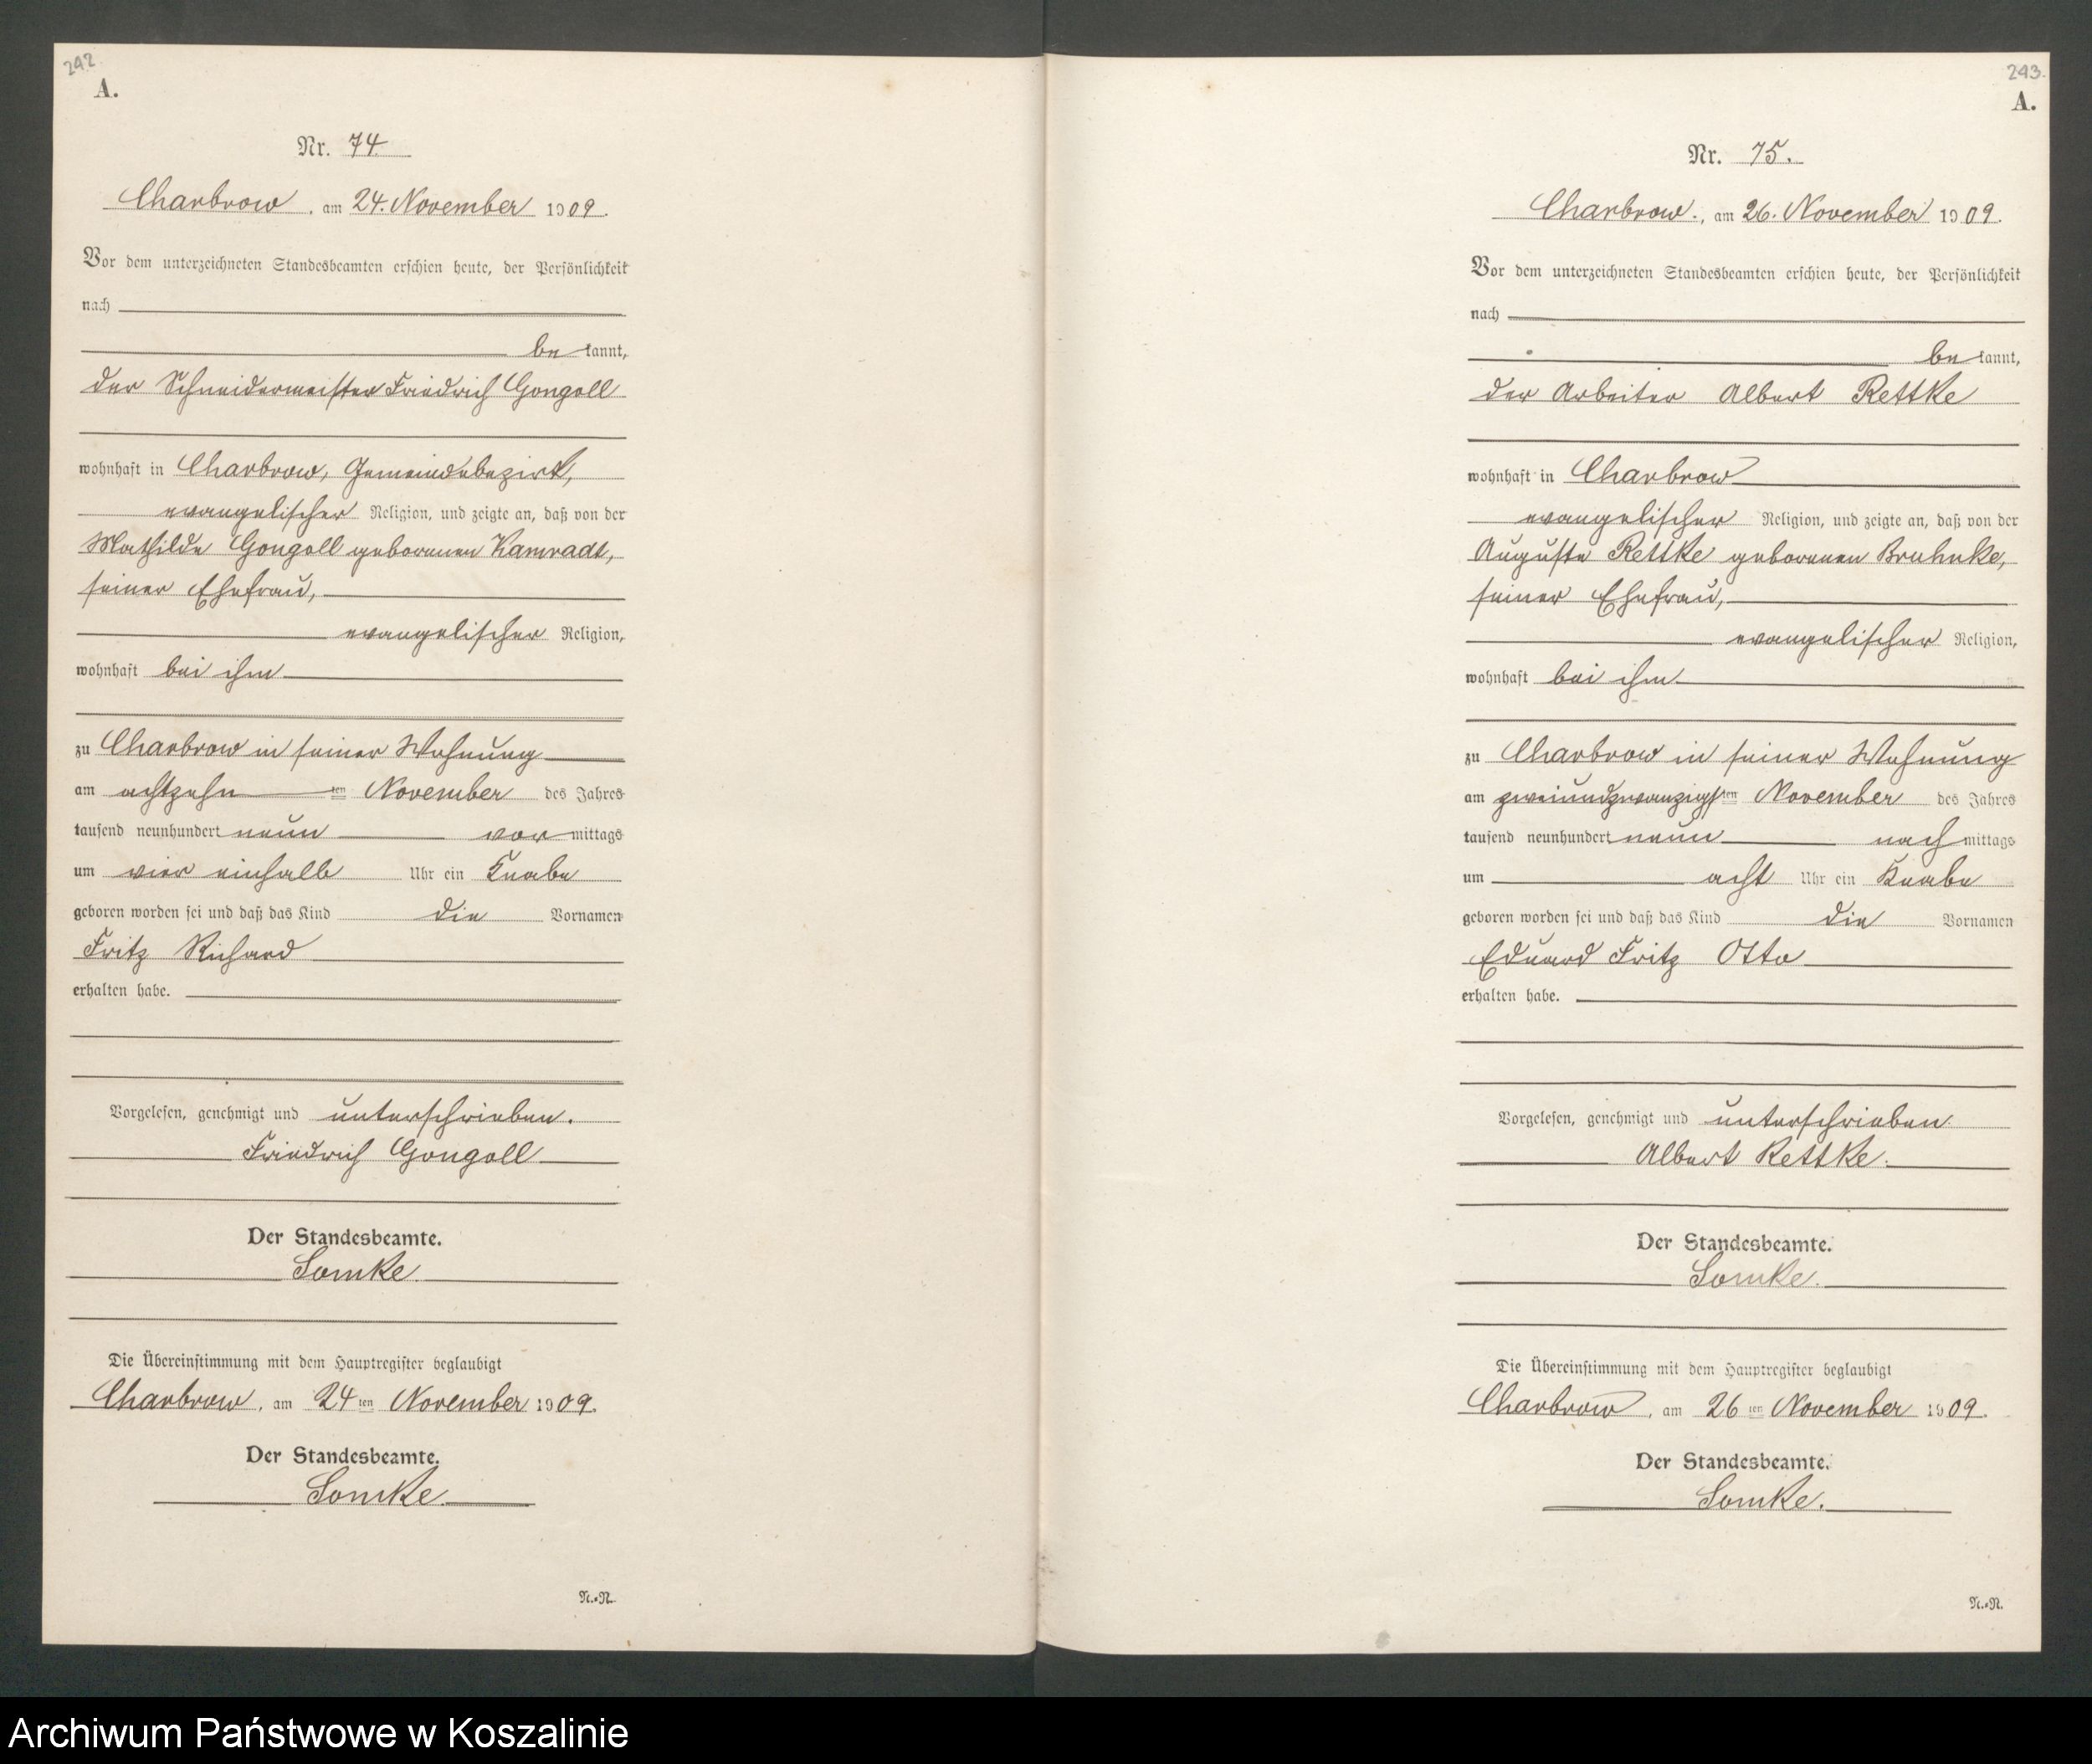 242
A.
Nr. 74
Charbrow, am 24. November 1909.
Vor dem unterzeichneten Standesbeamten erschien heute, der Persönlichkeit
nach
be kannt,
der Schneidermeister Friedrich Gongoll
wohnhaft in Charbrow, Gemeindebezirk,
evangelischer Religion, und zeigte an, daß von der
Mathilde Gongoll geborenen Kamradt,
seiner Ehefrau,
evangelischer Religion,
wohnhaft bei ihm
zu Charbrow in seiner Wohnung
am achtzehn ten November des Jahres
tausend neunhundert neun vor mittags
um vier einhalb Uhr ein Knabe
geboren worden sei und daß das Kind die Vornamen
Fritz Richard
erhalten habe.
Vorgelesen, genehmigt und unterschrieben.
Friedrich Gongoll
Der Standesbeamte.
Somke.
Die Übereinstimmung mit dem Hauptregister beglaubigt
Charbrow, am 24 ten November 1909.
Der Standesbeamte.
Somke.
N.=N.
243.
A.
Nr. 75.
Charbrow., am 26. November 1909.
Vor dem unterzeichneten Standesbeamten erschien heute, der Persönlichkeit
nach
be kannt,
der Arbeiter Albert Rettke
wohnhaft in Charbrow
evangelischer Religion, und zeigte an, daß von der
Auguste Rettke geborenen Bruhnke,
seiner Ehefrau,
evangelischer Religion,
wohnhaft bei ihm
zu Charbrow in seiner Wohnung
am zweiundzwanzigsten November des Jahres
tausend neunhundert neun nach mittags
um acht Uhr ein Knabe
geboren worden sei und daß das Kind die Vornamen
Eduard Fritz Otto
erhalten habe.
Vorgelesen, genehmigt und unterschrieben.
Albert Rettke.
Der Standesbeamte.
Somke.
Die Übereinstimmung mit dem Hauptregister beglaubigt
Charbrow, am 26 ten November 1909.
Der Standesbeamte.
Somke.
N.=N.
Archiwum Państwowe w Koszalinie